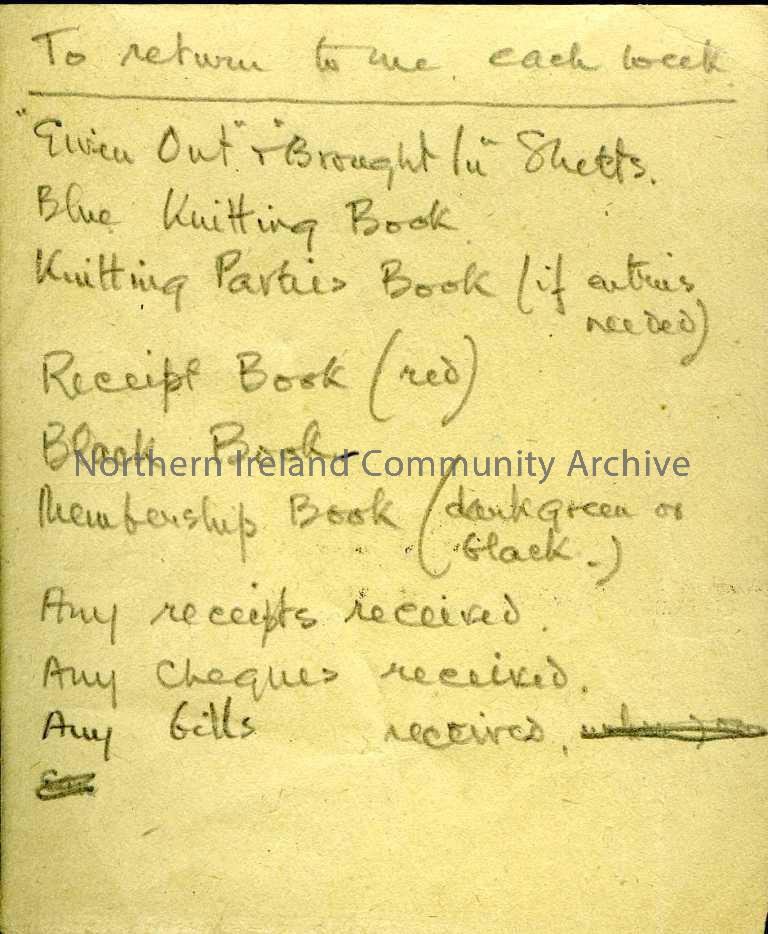 To return to me each week.
"Given Out" + "Brought In" Sheets.
Blue Knitting Book
Knitting Parties Book (if entries
needed)
Receipt Book (red)
Black Book
Northern Ireland Community Archive
Membership Book (dark green or
black.)
Any receipts received.
Any Cheques received.
Any bills received.